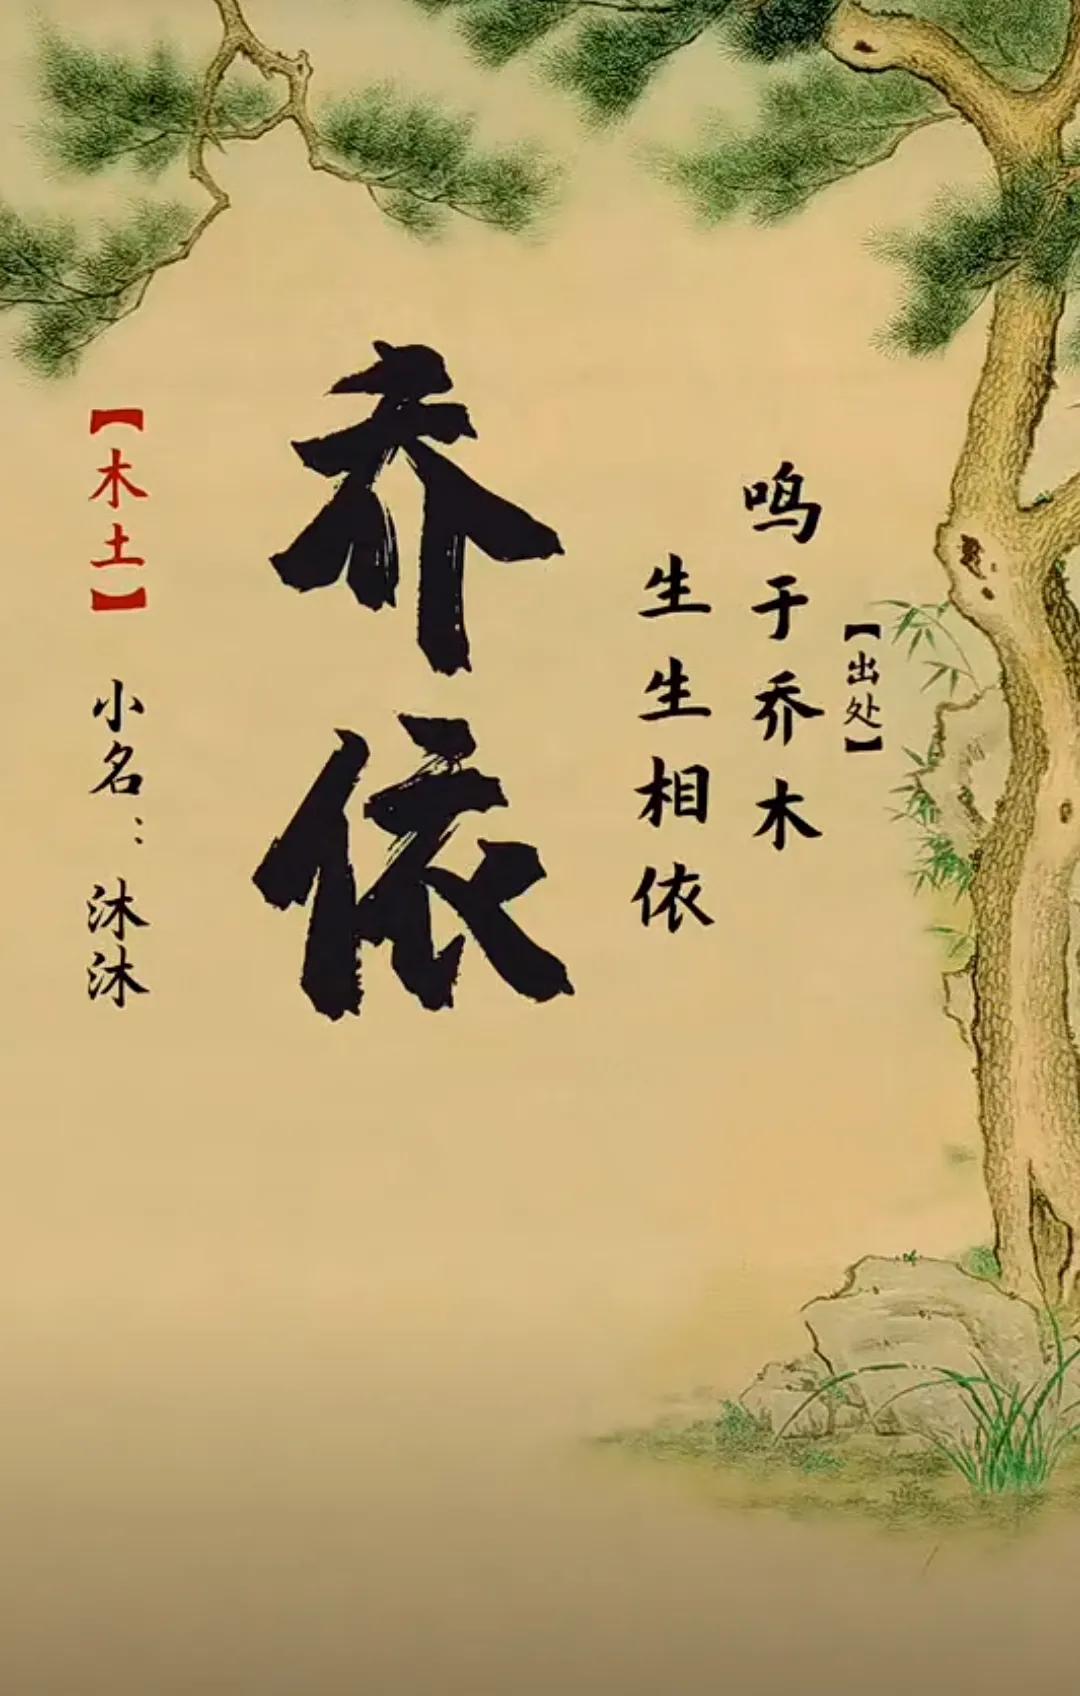 【出处】
鸣于乔木
生生相依
乔依
【木土】
小名：沐沐